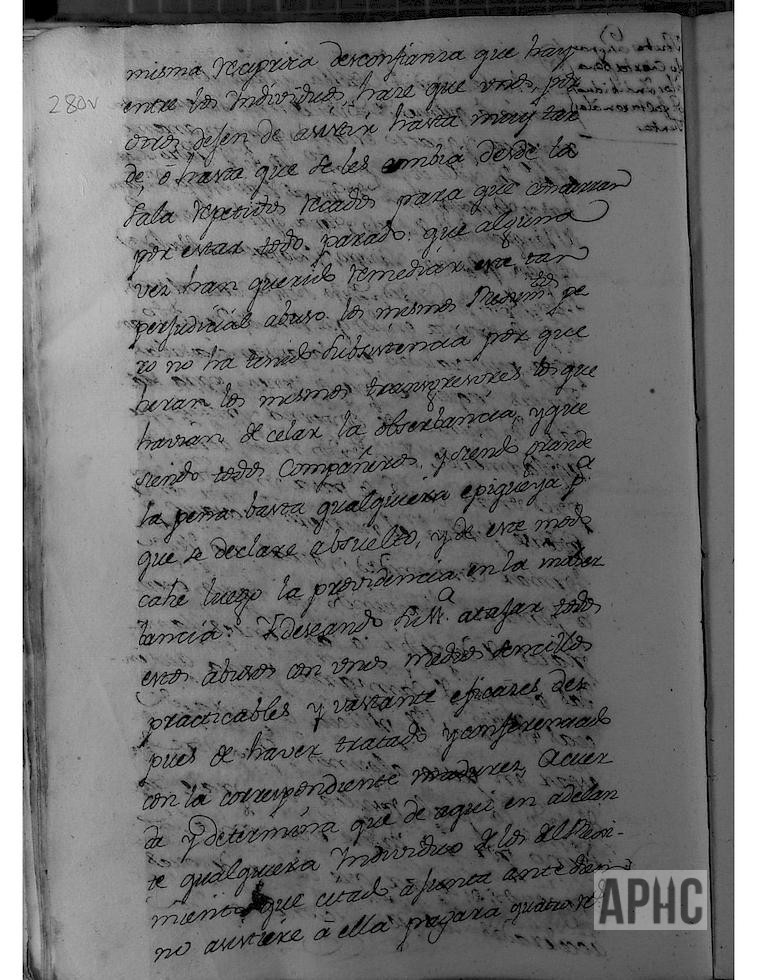 280v
misma reciproca desconfianza que hay
entre los Individuos, haze que unos, por
otros dejen de asistir hasta muy tar
de, o hasta que se les embia desde la
Sala repetidos recados para que concurran
por estar todo parado: que alguna
vez han querido remediar este tan
perjudicial abuso los mismos pe
ro no ha tenido subsistencia por que
heran los mismos transgresores los que
havian de celar la obserbancia, y que
siendo todos Compañeros, y siendo grande
la pena basta qualquiera epigueya pª
que se declare absuelto, y de este modo
cahe luego la providencia en la inobser
bancia: Y deseando atajar todos
estos abusos con unos medios sencillos
practicables y vastante eficazes des
pues de haver tratado y conferenciado
con la correspondiente madurez, Acuer
da y determina que de aqui en adelan
te qualquiera Individuo de los del
miento que citado a Junta ante diem
no asistiere à ella pagará quatro
APHC